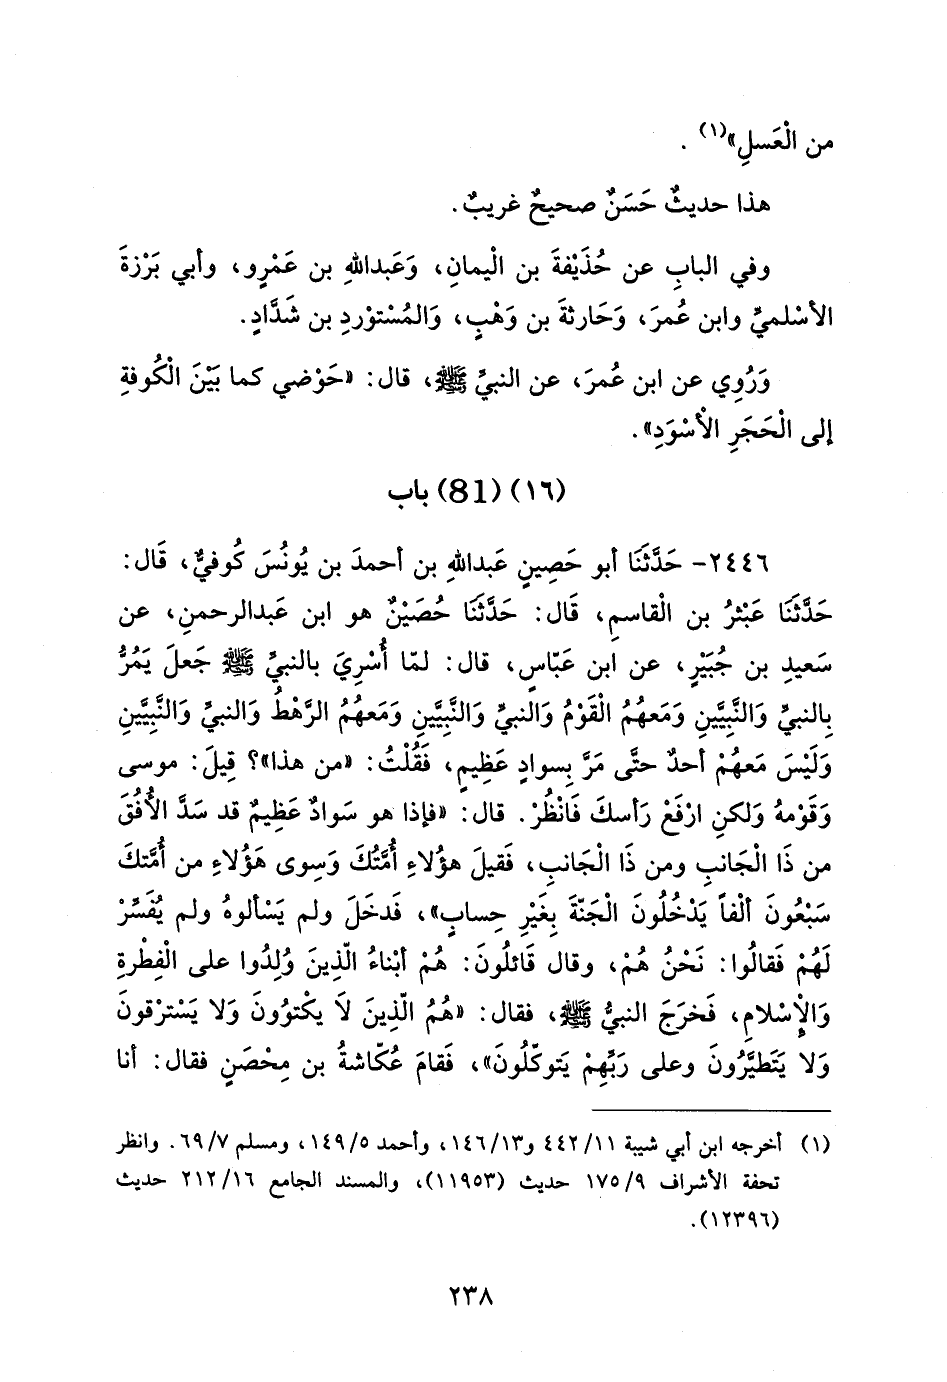 من الْعَسلِ»(١) .
هذا حديثٌ حَسَنٌ صحيحٌ غريبٌ.
وفي البابِ عن حُذَيْفةَ بن الْيمانِ، وَعَبداللهِ بن عَمْرٍو، وأبي بَرْزةَ
الأسْلميِّ وابن عُمرَ، وَحَارثةَ بن وَهْبٍ، وَالمُسْتوْردِ بن شَدَّادٍ.
وَرُوِي عن ابن عُمرَ، عن النبيِّ ﷺ، قال: «حَوْضي كما بَيْنَ الْكُوفةِ
إلى الْحَجَرِ الأسْوَدِ».
(١٦) (81) باب
٢٤٤٦- حَدَّثَنَا أبو حَصِينٍ عَبداللهِ بن أحمدَ بن يُونُسَ كُوفيٌّ، قَال:
حَدَّثَنَا عَبْثرُ بن الْقاسمِ، قَال: حَدَّثَنَا حُصَيْنٌ هو ابن عَبدالرحمنِ، عن
سَعيدِ بن جُبَيْرٍ، عن ابن عَبّاسٍ، قال: لمّا أُسْرِيَ بالنبيِّ ﷺ جَعلَ يَمُرُّ
بِالنبيِّ وَالنَّبِيَّينِ وَمَعهُمُ الْقَوْمُ وَالنبيِّ وَالنَّبِيَّينِ وَمَعهُمُ الرَّهْطُ وَالنبيِّ وَالنَّبِيَّينِ
وَلَيْسَ مَعهُمْ أحدٌ حتَّى مَرَّ بِسوادٍ عَظِيمٍ، فَقُلْتُ: «من هذا»؟ قِيلَ: موسى
وَقَوْمهُ وَلكنِ ارْفَعْ رَأسكَ فَانْظُرْ. قال: «فإذا هو سَوادٌ عَظِيمٌ قد سَدَّ الأُفُقَ
من ذَا الْجَانبِ ومن ذَا الْجَانبِ، فَقيلَ هؤُلاءِ أُمَّتُكَ وَسِوى هَؤُلاءِ من أُمَّتكَ
سَبْعُونَ ألْفاً يَدْخُلُونَ الْجَنّةَ بِغَيْرِ حِسابٍ»، فَدخَلَ ولم يَسْألوهُ ولم يُفَسَّرْ
لَهُمْ فَقالُوا: نَحْنُ هُمْ، وقال قَائلُونَ: هُمْ أبْناءُ الّذِينَ وُلِدُوا على الْفِطْرةِ
وَالْإسْلامِ، فَخرَجَ النبيُّ ﷺ، فقال: «هُمُ الّذِينَ لَا يكْتوُونَ وَلا يَسْترْقونَ
وَلا يَتَطيَّرُونَ وعلى رَبِّهِمْ يَتوكّلُونَ»، فَقامَ عُكّاشةُ بن مِحْصَنٍ فقال: أنا
(١) أخرجه ابن أبي شيبة ٤٤٢/١١ و١٤٦/١٣، وأحمد ١٤٩/٥، ومسلم ٦٩/٧. وانظر
تحفة الأشراف ١٧٥/٩ حديث (١١٩٥٣)، والمسند الجامع ٢١٢/١٦ حديث
(١٢٣٩٦).
٢٣٨